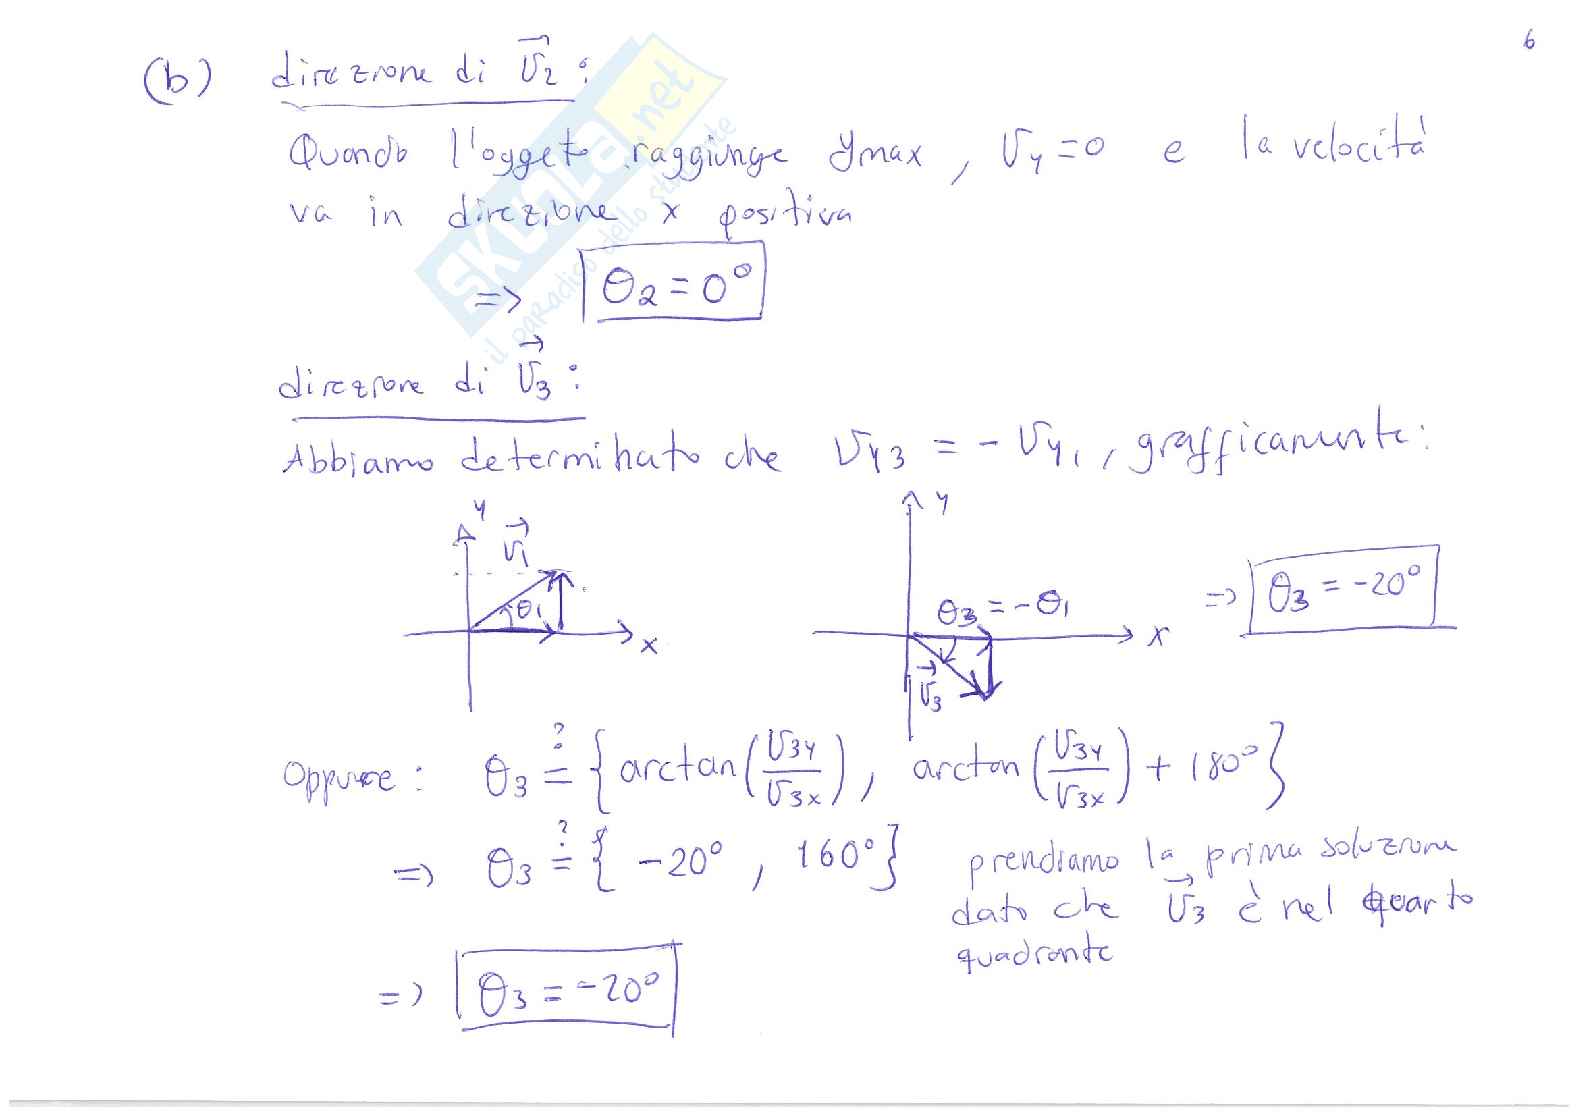 6
(b) direzione di v⃗2 :
Quando l'oggeto raggiunge ymax , vy = 0 e la velocità
va in direzione x positiva
=> θ2 = 0°
direzione di v⃗3 :
Abbiamo determinato che vy3 = - vy1 , grafficamente :
y
v⃗1
θ1
x
y
θ3 = -θ1
x
v⃗3
=> θ3 = -20°
Oppure : θ3 ≟ { arctan(v3y/v3x) , arctan(v3y/v3x) + 180° }
=> θ3 ≟ { -20° , 160° } prendiamo la prima soluzione
dato che v⃗3 è nel quarto
quadrante
=> θ3 = -20°
SKUOLA.net
il paradiso dello studente